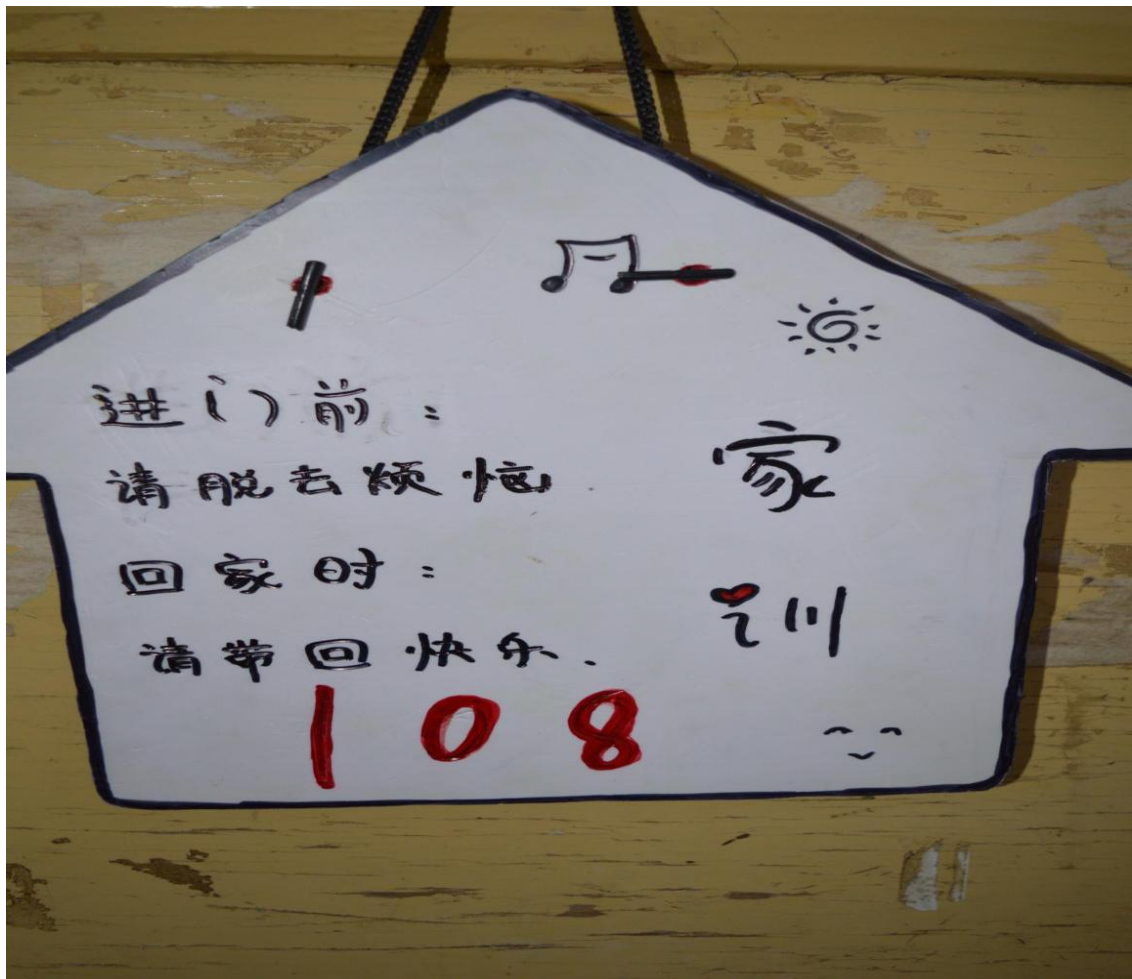 进门前：
请脱去烦恼
回家时：
请带回快乐.
108
家
训